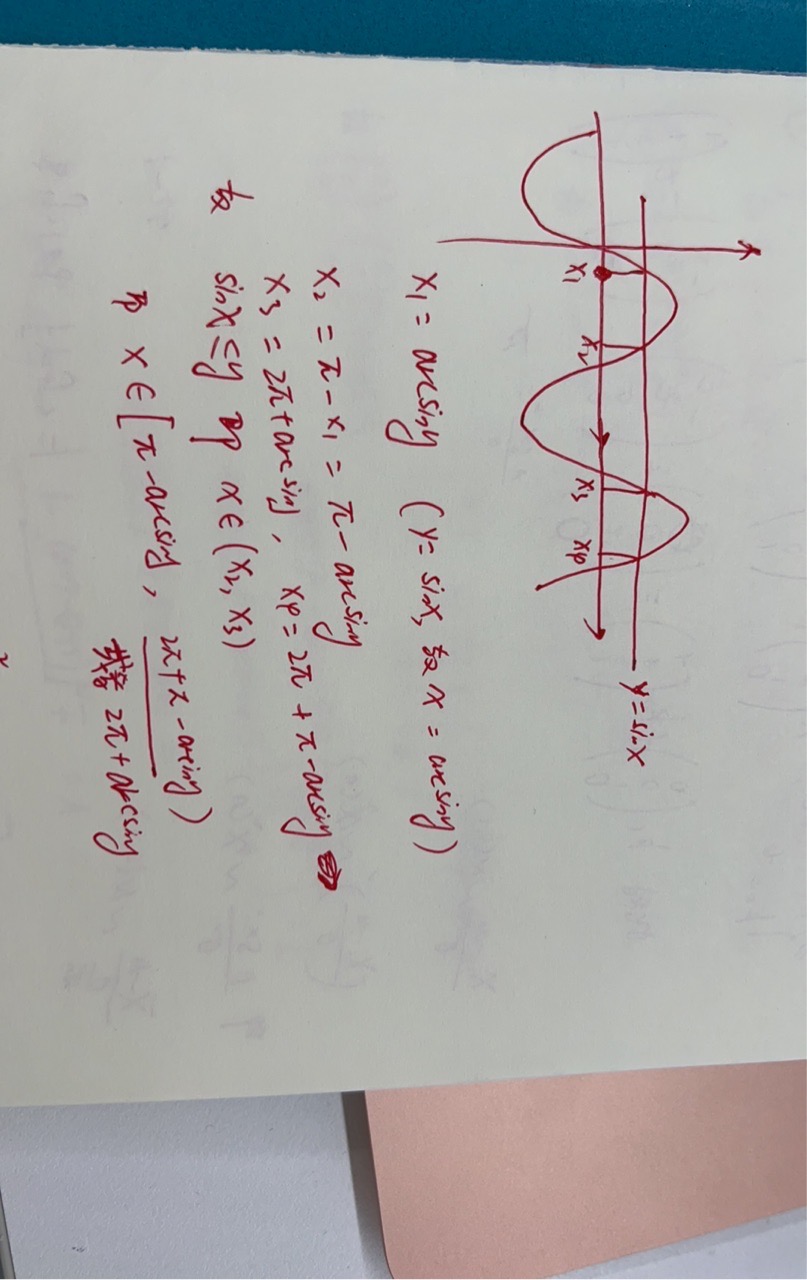 y=sinx
x₁
x₂
x₃
x₄
x₁ = arcsiny (y=sinx, 故 x = arcsiny)
x₂ = π - x₁ = π - arcsiny
x₃ = 2π+arcsiny, x₄ = 2π + π-arcsiny
故 sinx≤y 即 x∈(x₂, x₃)
即 x∈[π-arcsiny, 2π+π-arcsiny)
2π+arcsiny